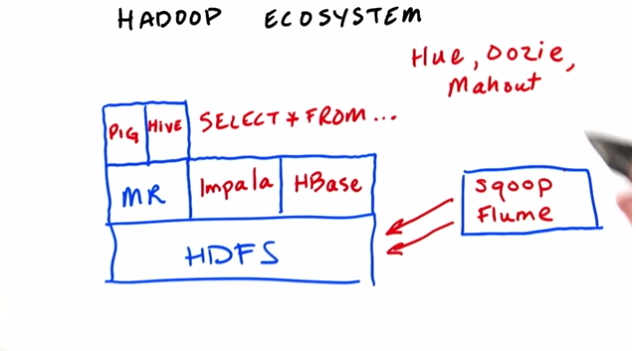 HADOOP ECOSYSTEM
Hue, Oozie,
Mahout
PIG HIVE SELECT * FROM...
MR Impala HBase
sqoop
Flume
HDFS